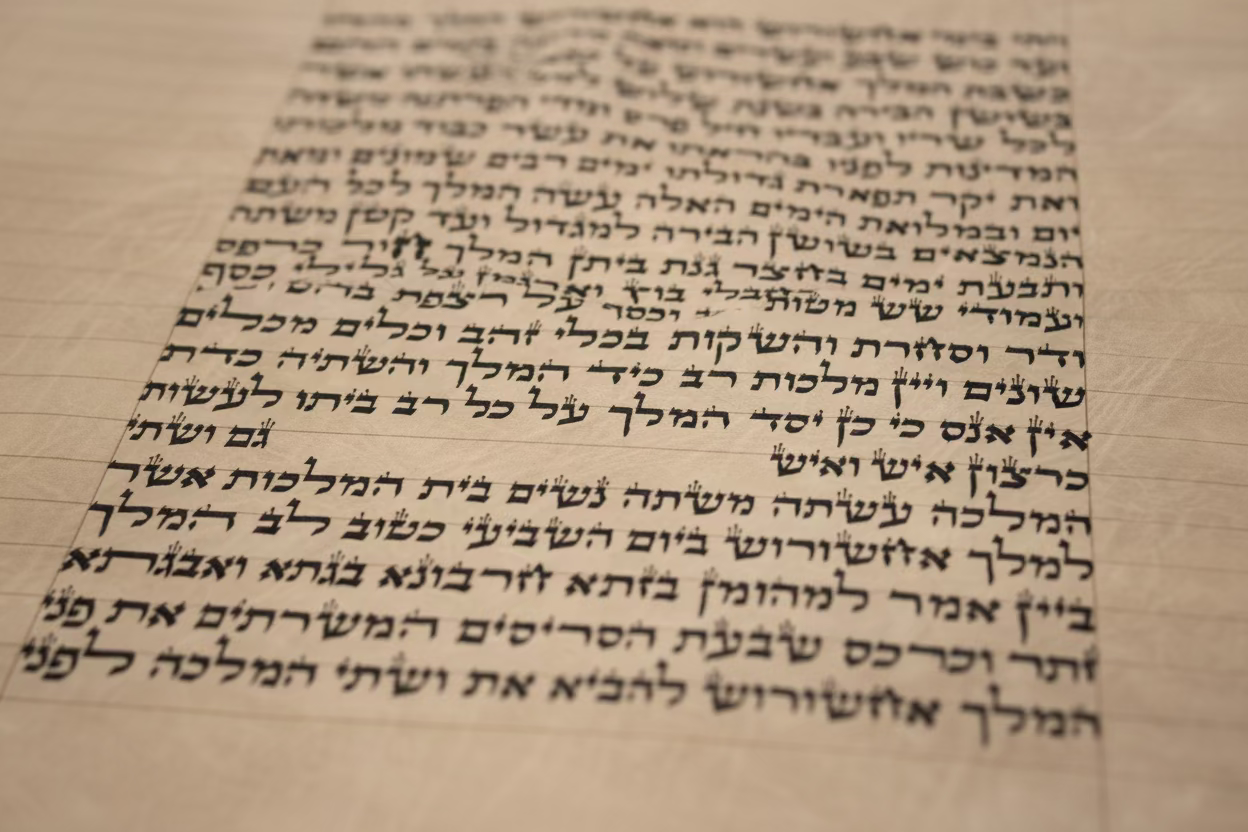 בימי אחשורוש הוא אחשורוש המלך
ועד כוש שבע ועשרים ומאה
כשבת המלך אחשורוש על אשר
בשושן הבירה בשנת שלוש
לכל שריו ועבדיו חיל פרס ומדי
המדינות לפניו בהראתו את עשר כבוד מלכותו
ואת יקר תפארת גדולתו ימים רבים שמונים ומאת
יום ובמלואת הימים האלה עשה המלך לכל העם
הנמצאים בשושן הבירה למגדול ועד קטן משתה
ימים בחצר גנת ביתן המלך כרפס
ועמודי שש מטות בוץ על גלילי כסף
וכסף על רצפת
ודר וסחרת והשקות בכלי זהב וכלים מכלים
שונים ויין מלכות רב כיד המלך והשתיה כדת
אין אנס כי כן יסד המלך על כל רב ביתו לעשות
כרצון איש ואיש גם ושתי
המלכה עשתה משתה נשים בית המלכות אשר
למלך אחשורוש ביום השביעי כטוב לב המלך
ביין אמר למהומן בזתא חרבונא בגתא ואבגתא
זתר וכרכס שבעת הסריסים המשרתים את פני
המלך אחשורוש להביא את ושתי המלכה לפני